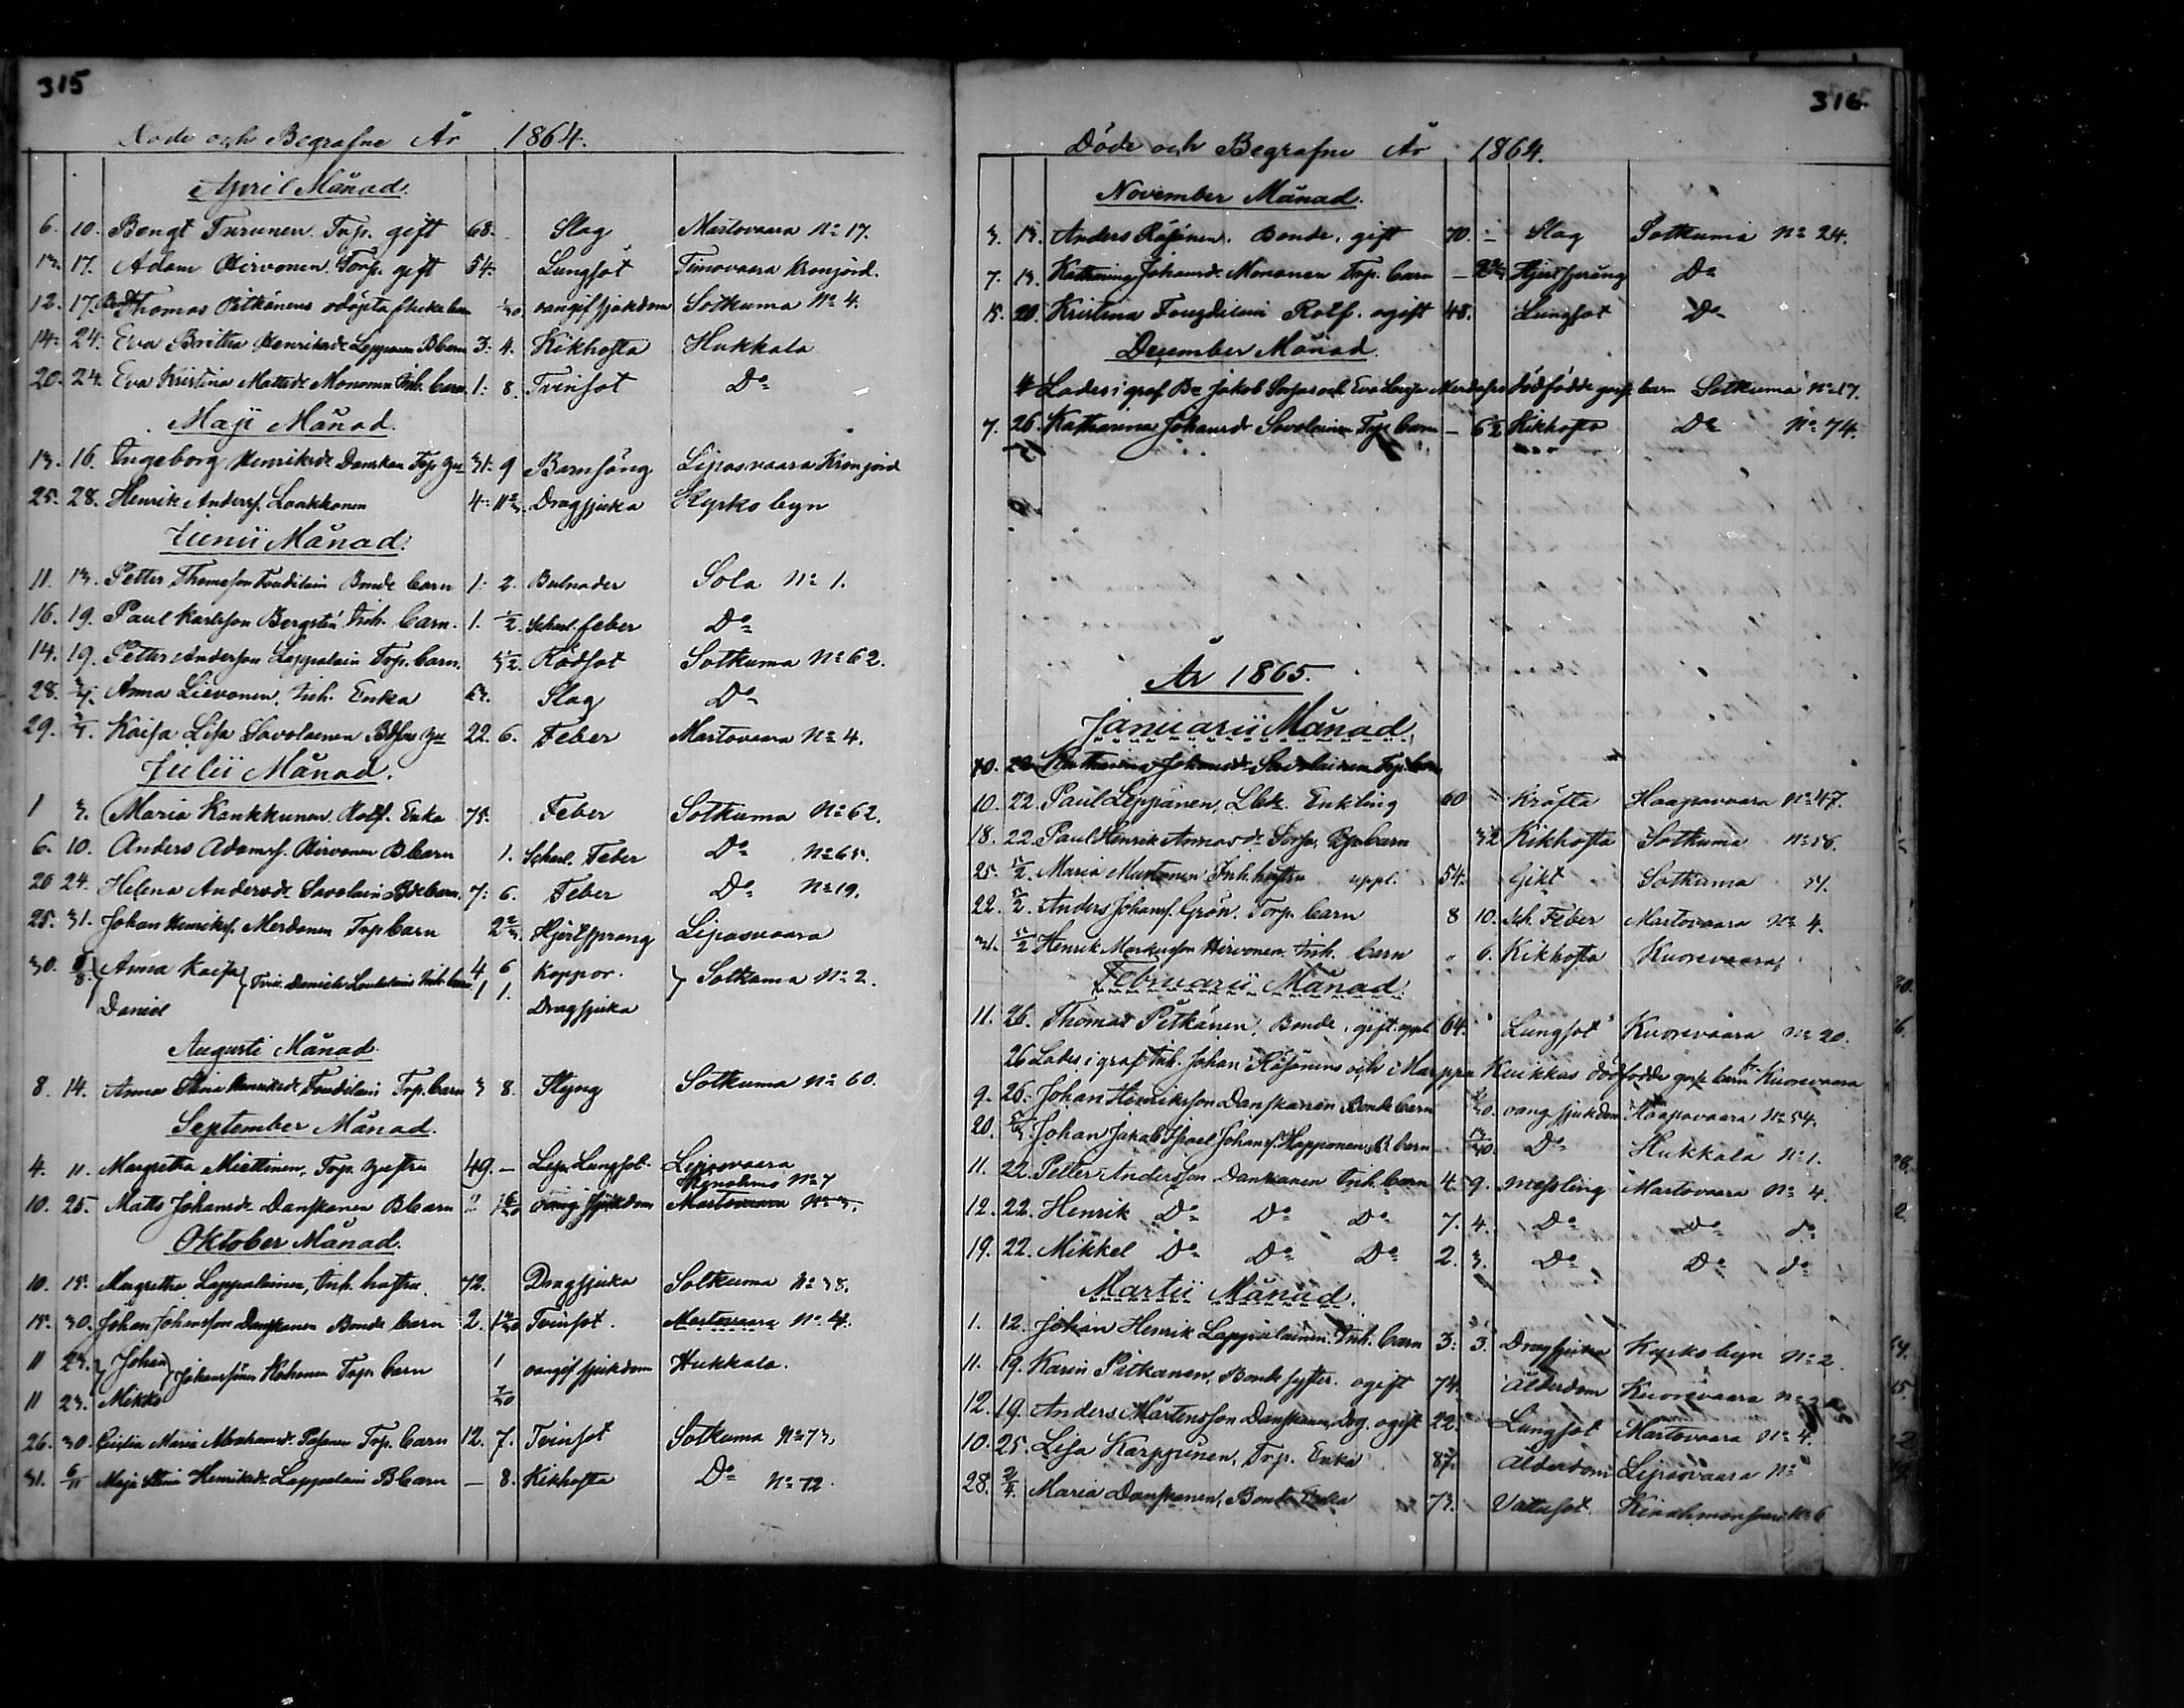 315
Döde och Begrafne År 1864.
April Månad.
6. 10. Bengt Turunen. Torp. gift 68. Slag Martovaara No 17.
13. 17. Adam Hirvonen. Torp. gift 54. Lungsot Timovaara Kronjord.
12. 17. Thomas Pitkänens odöpta flicke barn 1/30 oangif sjukdom Sotkuma No 4.
14. 24. Eva Britha Henriksdr Lepponen B barn 3. 4. Kikhosta Hukkala
20. 24. Eva Kristina Mattsdr Mononen Inh. barn. 1. 8. Tvinsot Do
Maji Månad.
13. 16. Ingeborg Henriksdr Danskan Torp 31. 9 Barnsäng Liposvaara Kronjord
25. 28. Henrik Anders. Laakkonen 4. 11 Dragsjuka Kyrkobyn
Junii Månad.
11. 13. Petter Thomasson Toudilain Bonde barn 1. 2. Bulnader Sola No 1.
16. 19. Paul Karlsson Bergstén Inh. barn. 1. 1/2. Scharl. feber Do
14. 19. Petter Anderson Lappalain Torp. barn. Rödsot Sotkuma No 62.
28. 3/7. Anna Lievonen, Inh. Enka 63. Slag Do
29. 3/7. Kaisa Lisa Savolainen 22. 6. Feber Martovaara No 4.
Julii Månad.
1 3. Maria Kankkunen. Rotf. Enka 75. Feber Sotkuma No 62.
6. 10. Anders Adams. Hirvonen B barn 1. Scharl. Feber Do No 65.
20 24. Helena Andersdr Savolain Bde barn. 7. 6. Feber Do No 19.
25. 31. Johan Henriks. Merdanen Torp barn 2 2/3. Hjertsprang Liposvaara
30. Anna Kaisa 4 6 Koppor. Sotkama No 2.
Daniel 1 1. Dragsjuka
Augusti Månad.
8. 14. Anna Stina Henriksdr Toudilain Torp. barn 3 8. Styng Sotkuma No 60.
September Månad.
4. 11. Margretha Miettinen, Torp. hustru 49. – Lungsot. Liposvaara
No 7
10. 25. Matts Johansdr Danskanen B barn oang. sjukdom Martovaara No 3.
Oktober Månad.
10. 15. Margretha Lappalainen, Inh. hustru. 72. Dragsjuka Sotkuma No 38.
15. 30. Johan Johansson Danskanen Bonde barn 2. Tvinsot. Martovaara No 4.
11 23. Johan Johanssöner Torp. barn 1 oangif sjukdom Hukkala.
11 23. Mikko 7/30
26. 30. Maria Abrahamsdr Torp. barn 12. 7. Tvinsot Sotkuma No 73,
31. 6/11 Maja Stina Henriksdr Lappalain B barn – 8. Kikhosta Do No 72.
316
Döde och Begrafne År 1864.
November Månad.
3. 13. Anders Räsänen. Bonde. gift 70. – Slag Sotkuma No 24.
7. 13. Katharina Johansdr Mononen Torp. barn – Hjertsprång Do
15. 20. Kristina Toudilain Rotf. ogift 48. Lungsot Do
December Månad.
4 Lades i graf Be Jakob Sorsas och Eva Lovisa dödfödde barn Sotkuma No 17.
7. 26. Katharina Johansdr Savolainen Torp barn – Kikhosta Do No 74.
År 1865.
Januarii Månad.
10. 22 Katharina Johansdr Savolainen Torp. barn
10. 22. Paul Leppänen, Enkling 60 Kräfta Haapovaara No 47.
18. 22. Paul Henrik Sorsa, barn Kikhosta Sotkuma No 56.
25. 5/2. Maria Mustonen Inh. hustru uppl. 54. Gikt Sotkuma 57.
22. 5/2. Anders Johans. Grön. Torp. barn 8 10. Sch. Feber Martovaara No 4.
31. 5/2 Henrik Markusson Hirvonen. Inh. barn 6. Kikhosta Kuorevaara
Februarii Månad.
11. 26. Thomas Pitkänen, Bonde, gift. 64. Lungsot Kuorevaara No 20.
26 Lades i graf Inh. Johan Räsänens och Marppa Kuikkas dödfödde barn Kuorevaara
9. 26. Johan Henriksson Danskanen Bonde barn oang. sjukdom Haapovaara No 54.
20. 5/3. Johan Jakob Israel Johans. Happonen, B. barn 13/30 Do Hukkala No 1.
11. 22. Petter Andersson Danskanen Inh. barn 4. 9. messling Martovaara No 4.
12. 22. Henrik Do Do Do 7. 4. Do do do
19. 22. Mikkel Do Do Do 2. 3. Do Do do
Martii Månad.
1. 12. Johan Henrik Lappalainen. Inh. barn 3. 3. Dragsjuka Kyrkobyn No 2.
11. 19. Karin Pitkänen, Bonde syster. ogift 74. Ålderdom Kuorevaara No 20
12. 19. Anders Mårtensson Danskanen, Drg. ogift 22. Lungsot Martovaara No 4.
10. 25. Lisa Karppinen, Torp. Enka 87. Ålderdom Liposvaara No
28. 2/4. Maria Danskanen, Bonde Enka 73. Vattusot. No 6